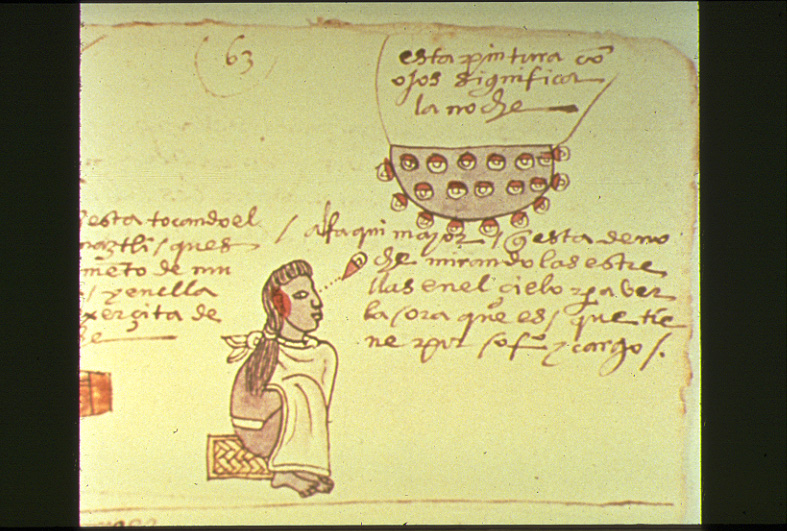 63
esta pintura cõ
ojos significa
la noche
esta tocando el
naztli / ques
mẽto de mu
/ y enella
exerçita de
he
/ alfaqui mayor / q̃ esta de no
che mirando las estre
llas en el cielo y p a ver
la ora que es / que tie
ne por ofiº y cargo /.